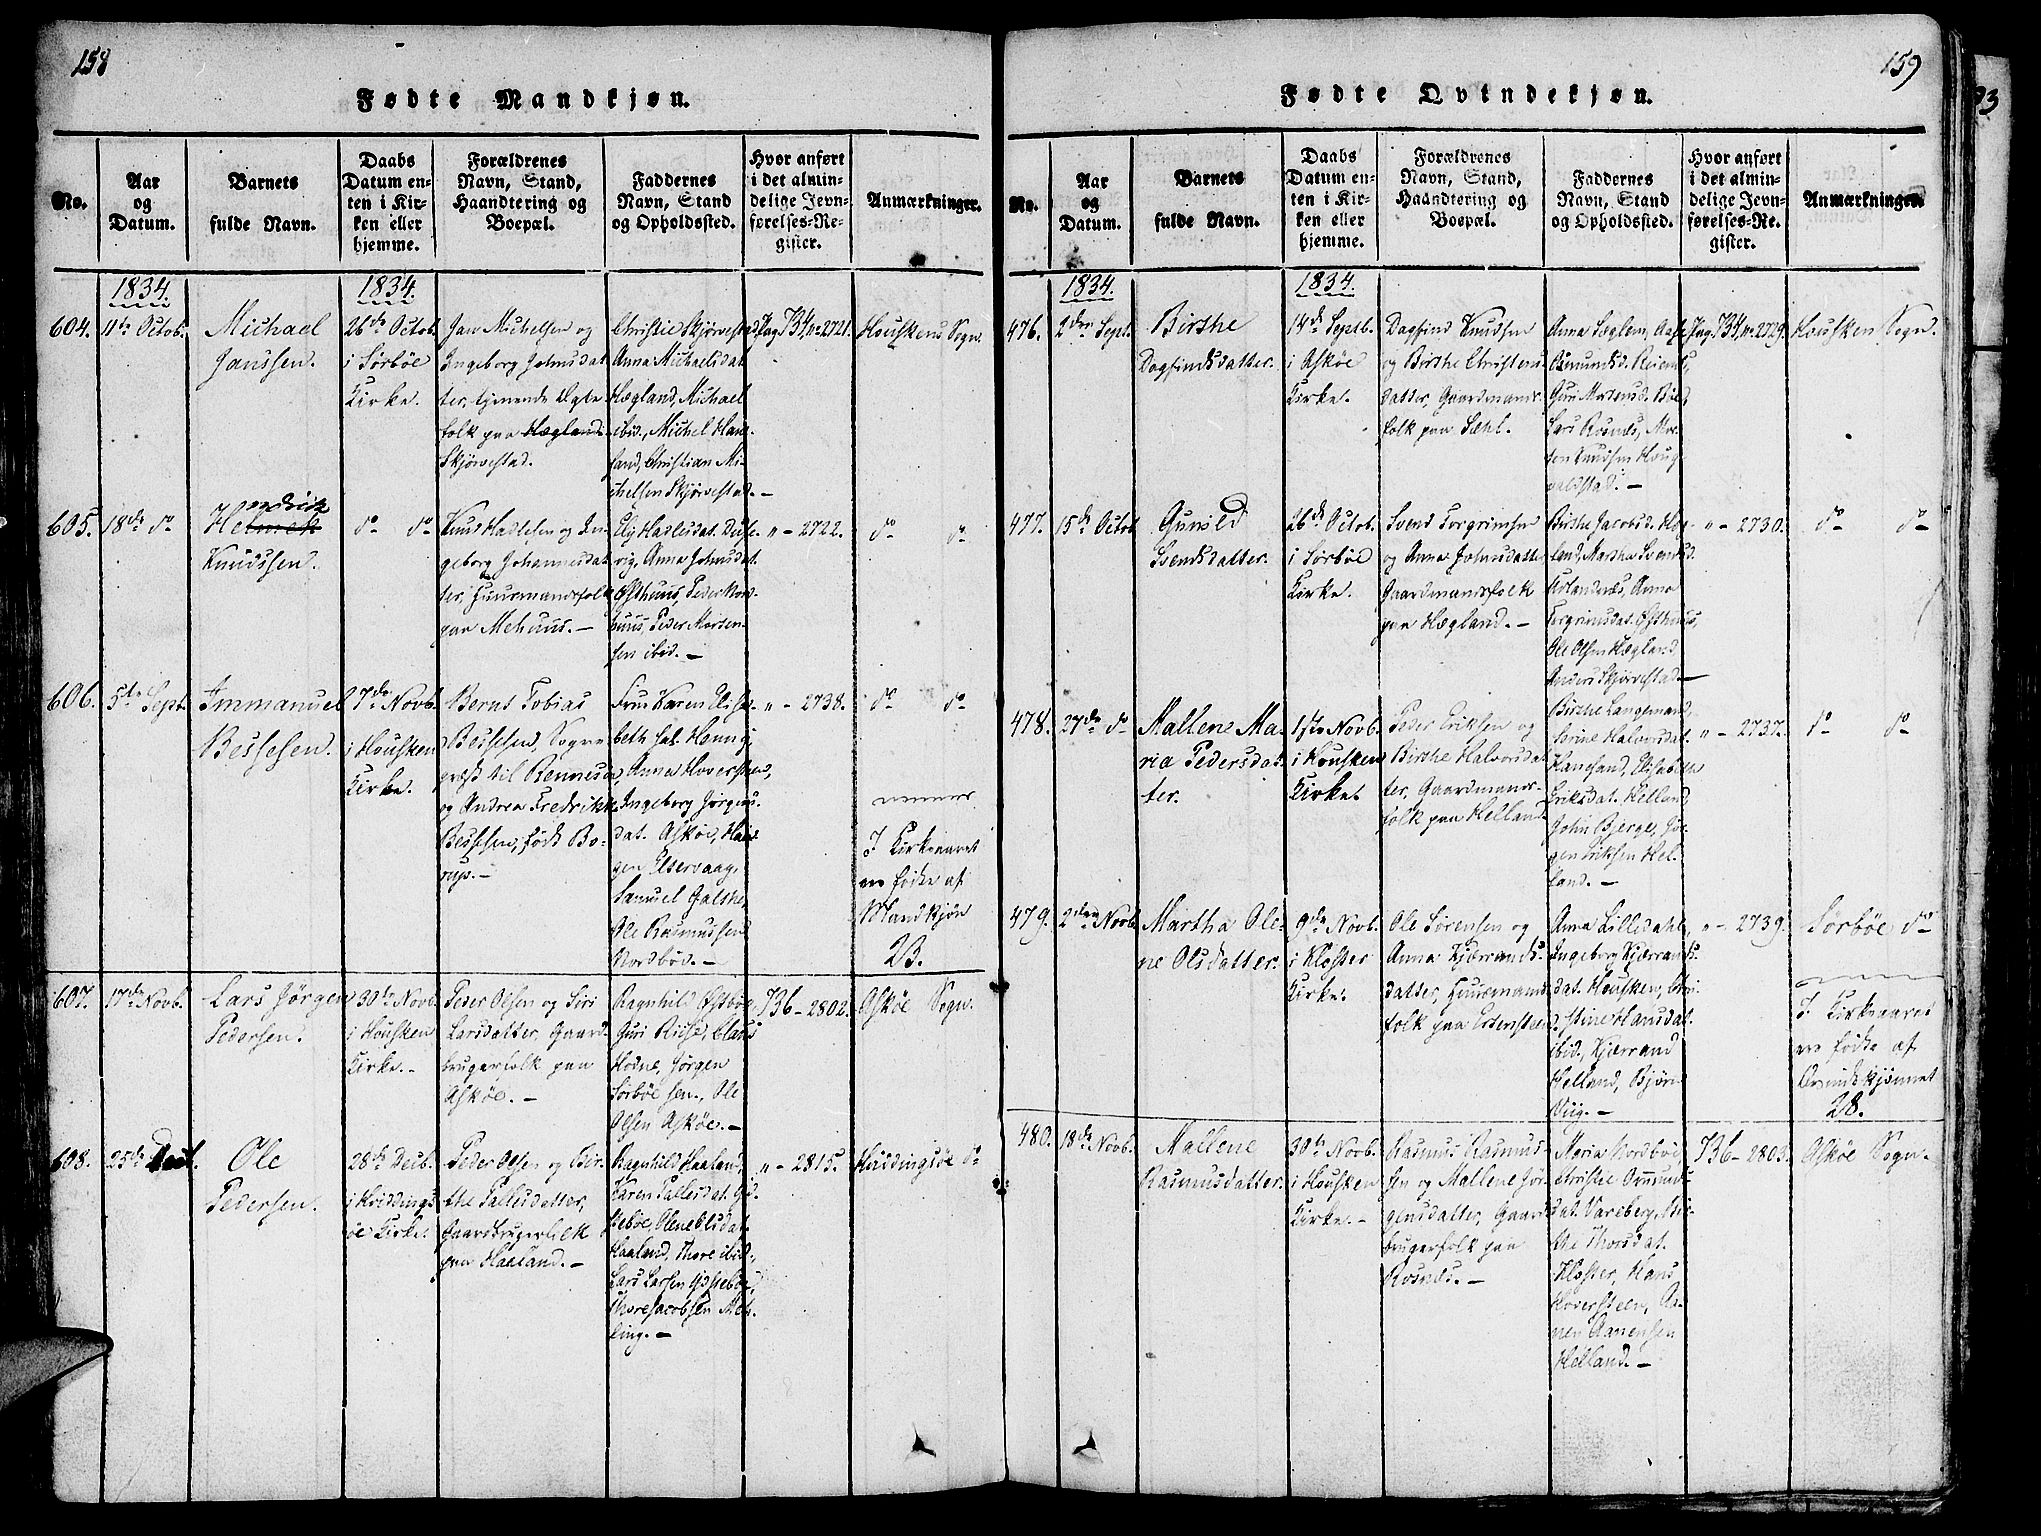 158
Fødte Mandkjøn.
No.
Aar
og
Datum.
Barnets
fulde Navn.
Daabs
Datum en-
ten i Kir-
ken eller
hjemme.
Forældrenes
Navn, Stand,
Haandtering og
Boepæl.
Faddernes
Navn, Stand
og Opholdssted.
Hvor anført
i det almin-
delige Jevn-
førelses-Re-
gister.
Anmærkninger.
1834.
1834.
604.
11te Octob.
Michael
Janssen.
26de Octob.
i Sørbøe
Kirke.
Jan Michelsen og
Ingeborg Johnsdat
ter, tjenende Ægte
folk paa Hægland
Skjørvestad.
Christie Skjørvestad,
Anna Michaelsdat
Hægland, Michael
ibid., Michel Hane-
sand, Christian Mi-
chelsen Skjørvestad.-
Pag. 734, No 2721.
Houskens Sogn.
605.
18de do
Hendrick
Knudssen.
do do
Knud Hadlesen og In-
geborg Johannesdat
ter, Huusmandsfolk
paa Mehuus.-
Anna Johnsdat.
Østhuus, Peder
Peder Morten-
sen ibid.-
" - 2722.
do do
606.
5te Sept.
Immanuel
Bessesen.
7de Novb.
i Housken
Kirke.
Bernt Tobias
Bessesen, Sogne
præst til Rennesøe
og Andrea Fredrikke
Bessesen, født Bo-
rup.-
Fru Karen Elisa-
beth Sal. Hennig,
Anna Hoversteen,
Ingeborg Jørgens-
dat. Askøe,
gen Eltervaag,
Samuel Galthe,
Ole Rasmussen
Nordbøe.-
" - 2738.
do do
I Kirkeaaret
ere fødte af
Mandkjøn
23.
607.
17de Novb.
Lars Jörgen
Pedersen.
30te Novb.
i Housken
Kirke.-
Peder Olsen og Siri
Larsdatter, Gaard-
brugerfolk paa
Askøe.-
Ragnhild Østbøe,
Guri Riise, Claus
Hodne, Jørgen
Sørbøe sen., Ole
Olsen Askøe.-
736 - 2802.
Askøe Sogn.
608.
25de Decb.
Ole
Pedersen.
28de Decb.
i Hviddings
øe Kirke.
Peder Olsen og Bir-
the Tallesdatter,
Gaardbrugerfolk
paa Haaland.-
Ragnhild Haaland,
Karen Tallesdat. Gid-
skebøe,
Haaland, Thore ibid.,
Lars Larsen Gidskebøe,
Thore Jacobsen Meh-
ling.-
" - 2815.
Hviddingsøe do
159
Fødte Qvindekjøn.
No.
Aar
og
Datum.
Barnets
fulde Navn.
Daabs
Datum en-
ten i Kir-
ken eller
hjemme.
Forældrenes
Navn, Stand,
Haandtering og
Boepæl.
Faddernes
Navn, Stand
og Opholdssted.
Hvor anført
i det almin-
delige Jevn-
førelses-Re-
gister.
Anmærkninger.
1834.
1834.
476.
2den Septb.
Birthe
Dagfindsdatter.
14de Septb.
i Askøe
Kirke.
Dagfind Knudsen
og Birthe Christens-
datter, Gaardmands-
folk paa Sæhl.
Asmundsd. Reiem
Guri Mortensd. Bøe,
Lars Rosnæs, Mor-
ten Knudsen Houg
valdstad.-
Pag. 734, No 2729.
Housken Sogn.
477.
15de Octob.
Gunild
Svendsdatter.
26de Octob.
i Sørbøe
Kirke.
Svend Torgrimsen
og Anna Johnsdatter
Gaardmandsfolk
paa Hægland.-
Birthe Jacobsd. Hæg-
land, Martha Svendsd.
Anna
Torgrimsdat. Østhuus,
Ole Olsen Hægland
Anders Skjørvestad.-
" - 2730.
do do
478.
27de do
Mallene Ma-
ria Pedersdat-
ter.
1ste Novb.
i Housken
Kirke.
Peder Eriksen og
Birthe Halvorsdat
ter, Gaardmands-
folk paa Helland.
Birthe Langeland,
Serine Halvorsdat.
Hanesand, Elisabeth
Eriksdat. Helland,
John Bjerge, Jør-
gen Eriksen Hel-
land.-
" - 2737.
do do
479.
2den Novb.
Martha Ole-
ne Olsdatter.
9de Novb.
i Kloster
Kirke.
Ole Sørensen og
Anna Kjærrands-
datter, Huusmands
folk paa Ertensteen.
Anna Lilledahl,
Ingeborg Kjærrands-
dat. Housken, Chri-
stine Hansdat.
ibid., Kjærrand
Helland, Bjørn
Viig.-
" - 2739.
Sørbøe do
I Kirkeaaret
ere fødte af
Qvindekjønnet
28.
480.
18de Novb.
Mallene
Rasmusdatter.
30te Novb.
i Housken
Kirke.-
Rasmus Rasmus-
sen og Mallene Jør-
gensdatter, Gaard
brugerfolk paa
Rosnæs.-
Maria Nordbøe,
Christie Ommund-
dat. Vareberg, Bir-
the Thorsdat.
Kloster, Hans
Hoversteen, Aa-
nen Aanensen
Helland.-
736 - 2803.
Askøe Sogn.